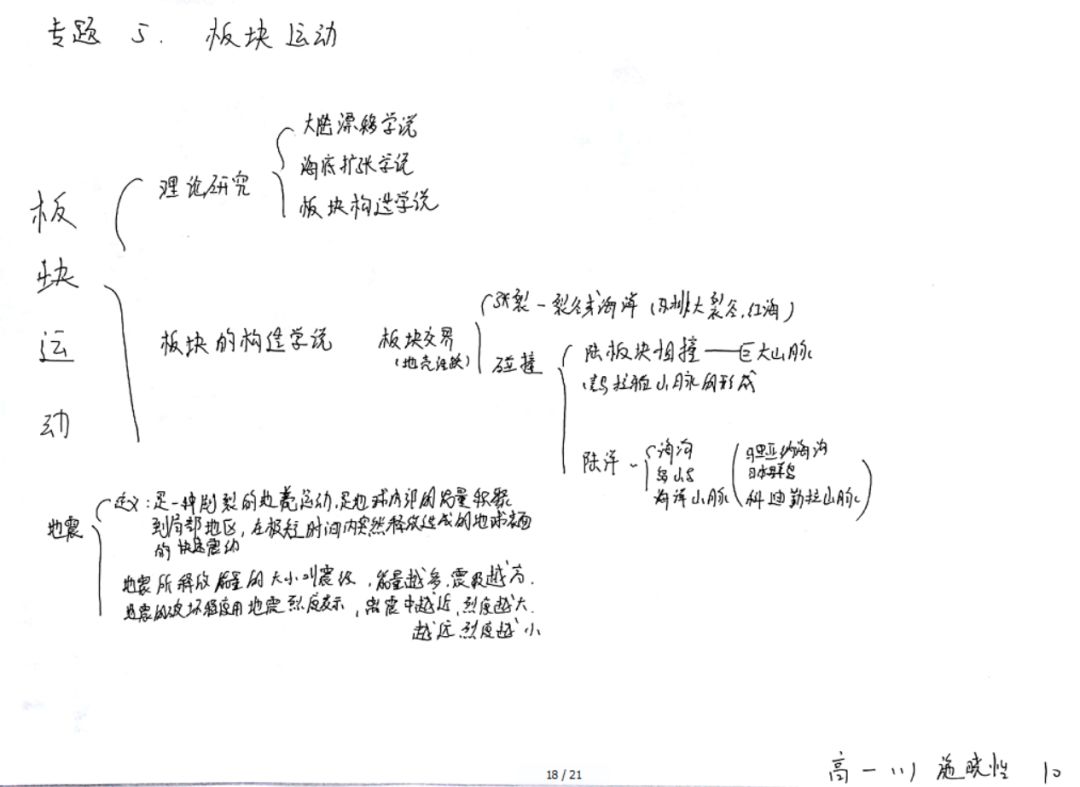 专题 5. 板块运动
板块运动
理论研究
大陆漂移学说
海底扩张学说
板块构造学说
板块的构造学说
板块交界
(地壳活跃)
张裂-裂谷或海洋(东非大裂谷.红海)
碰撞
陆板块相撞——巨大山脉
喜马拉雅山脉的形成
陆洋-
海沟
岛山弧
海洋山脉
马里亚纳海沟
日本群岛
科迪勒拉山脉
地震
定义:是一种剧裂的地壳运动.是地球内部的能量积聚
到局部地区,在极短时间内突然释放造成的地球表面
的快速震动
地震所释放能量的大小叫震级,能量越多,震级越高.
地震的破坏程度用地震烈度表示,离震中越近,烈度越大.
越远烈度越小
18 / 21
高一(1) 施晓性 10